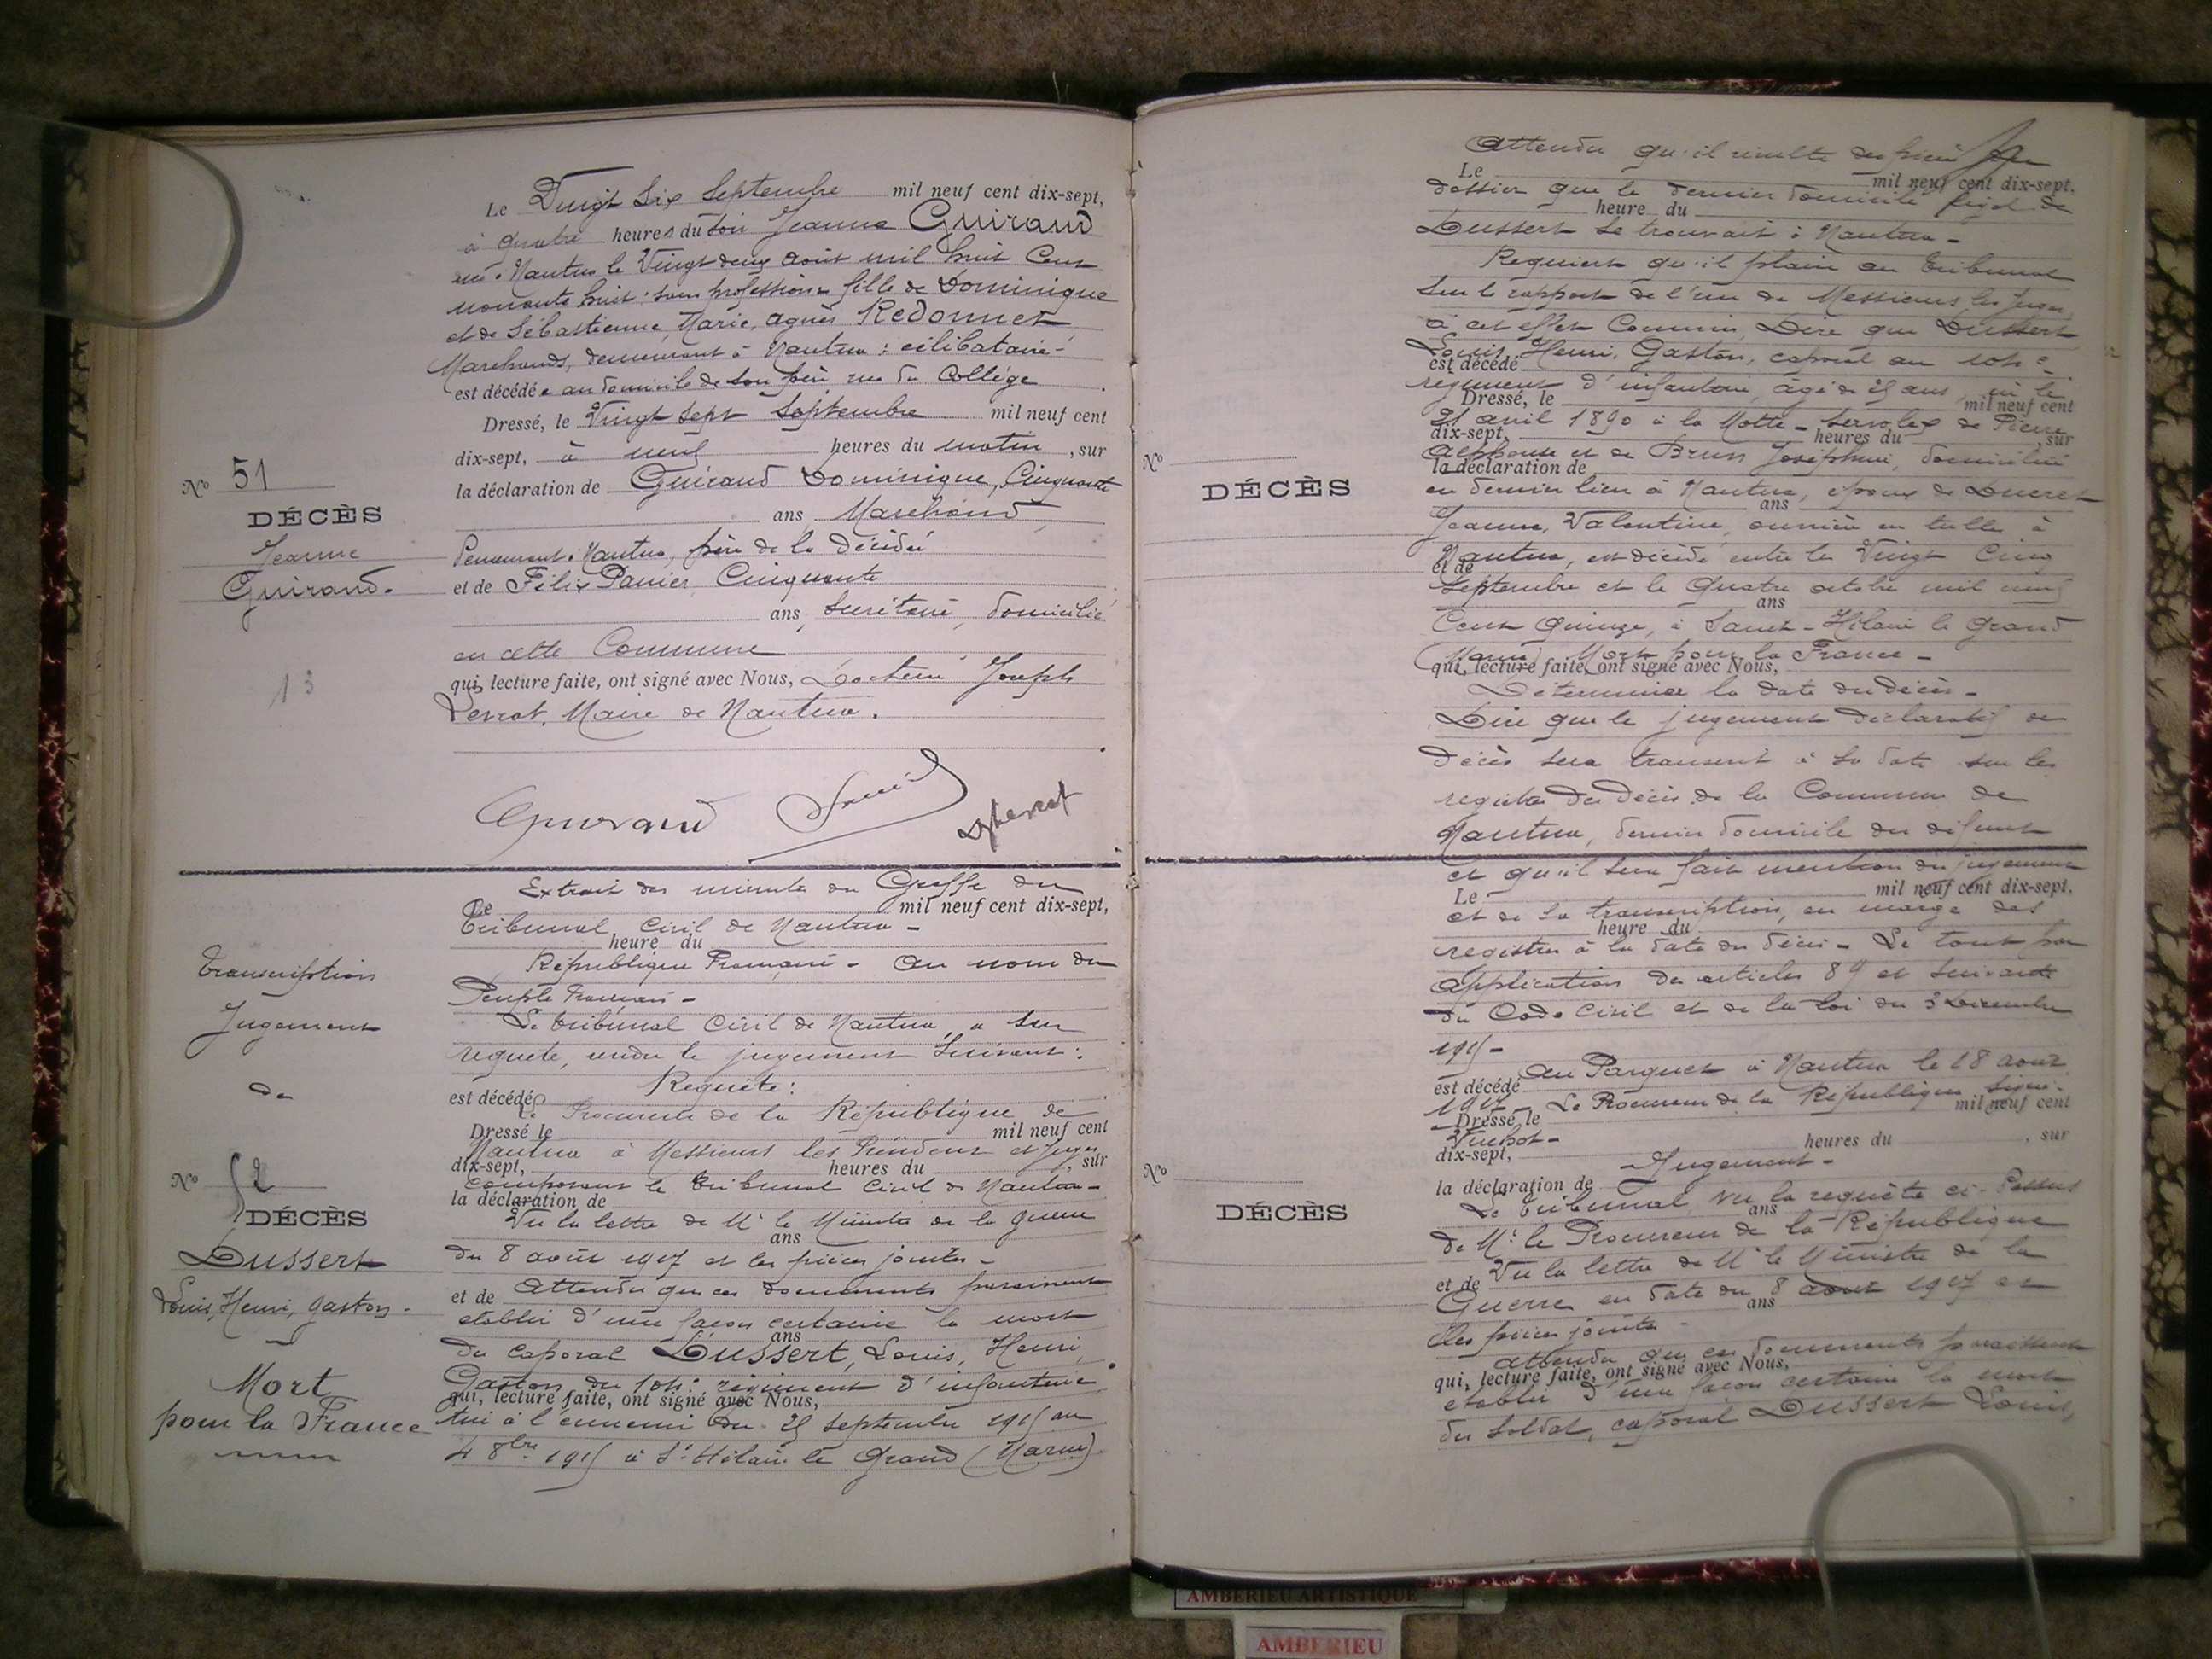 Le Vingt Six Septembre mil neuf cent dix-sept,
à quatre heures du soir Jeanne Guiraud
née à Nantua le Vingt deux août mil huit Cent
nonante huit, sans profession, fille de Dominique
et de Sébastienne, Marie, agnès Redonnet
Marchands, demeurant à Nantua : célibataire -
est décédée au domicile de son père rue du Collège
Dressé, le Vingt sept Septembre mil neuf cent
dix-sept, à neuf heures du matin, sur
la déclaration de Guiraud Dominique, Cinquante
ans Marchand
demeurant à Nantua, père de la décédée
et de Félix Panier, Cinquante
ans, Secrétaire, domicilié
en cette Commune
qui, lecture faite, ont signé avec Nous, Docteur Joseph
Levrat, Maire de Nantua.
Nº 51
DÉCÈS
Jeanne
Guiraud.
13
Guiraud
Extrait des minutes du Greffe du
Le mil neuf cent dix-sept,
Tribunal Civil de Nantua -
heure du
République Française - Au nom du
Peuple Français -
Le tribunal Civil de Nantua, a sur
requête, rendu le jugement Suivant :
Requête :
est décédé
Le Procureur de la République de
Dressé le mil neuf cent
Nantua à Messieurs les Président et Juges
dix-sept, heures du , sur
composant le tribunal Civil de Nantua -
la déclaration de
Vu la lettre de Mr le Ministre de la guerre
ans
du 8 août 1917 et les pièces jointes -
et de Attendu que ces documents paraissent
établir d'une façon certaine la mort
ans
du Caporal Dussert, Louis, Henri,
Gaston du régiment d'infanterie
qui, lecture faite, ont signé avec Nous,
tué à l'ennemi du 25 septembre 1915 au
4 8bre 1915 à St Hilaire le Grand (Marne)
Transcription
Jugement
de
Nº 52
DÉCÈS
Dussert
Louis, Henri, Gaston -
Mort
pour la France
Attendu qu'il résulte des pièces du
Le mil neuf cent dix-sept,
dossier que le dernier domicile légal de
heure du
Dussert se trouvait à Nantua -
Requiert qu'il plaise au tribunal
Sur le rapport de l'un de Messieurs les Juges
à cet effet Commis, Dire que Dussert
Louis, Henri, Gaston, caporal au
est décédé
régiment d'infanterie, âgé de 25 ans, né le
Dressé, le mil neuf cent
21 avril 1890 à la Motte-Servolex de Pierre
dix-sept, heures du , sur
Alphonse et de Brun Joséphine, domicilié
la déclaration de
en dernier lieu à Nantua, époux de Ducret
ans
Jeanne, Valentine, ouvrière en tulles à
Nantua, est décédé entre le Vingt Cinq
et de
Septembre et le Quatre octobre mil neuf
ans
Cent Quinze, à Saint-Hilaire le Grand
(Marne) Mort pour la France -
qui, lecture faite, ont signé avec Nous,
Déterminer la date du décès -
Dire que le jugement déclaratif de
décès sera transcrit à sa date sur les
registres des décès de la Commune de
Nantua, dernier domicile du défunt
Nº
DÉCÈS
et qu'il sera fait mention du jugement
Le mil neuf cent dix-sept,
et de la transcription, en marge des
heure du
registres à la date du décès - Le tout par
Application des articles 89 et suivants
du Code Civil et de la loi du 3 Décembre
1915 -
Au Parquet à Nantua le 18 août
est décédé
1917 - Le Procureur de la République Signé :
Dressé le mil neuf cent
dix-sept, heures du , sur
Jugement -
la déclaration de
Le tribunal Vu la requête ci-dessus
ans
de Mr le Procureur de la République
Vu la lettre de Mr le Ministre de la
et de
Guerre en date du 8 août 1917 et
ans
les pièces jointes -
Attendu que ces documents paraissent
qui, lecture faite, ont signé avec Nous,
établir d'une façon certaine la mort
du Soldat, caporal Dussert Louis,
Nº
DÉCÈS
AMBERIEU ARTISTIQUE
AMBERIEU